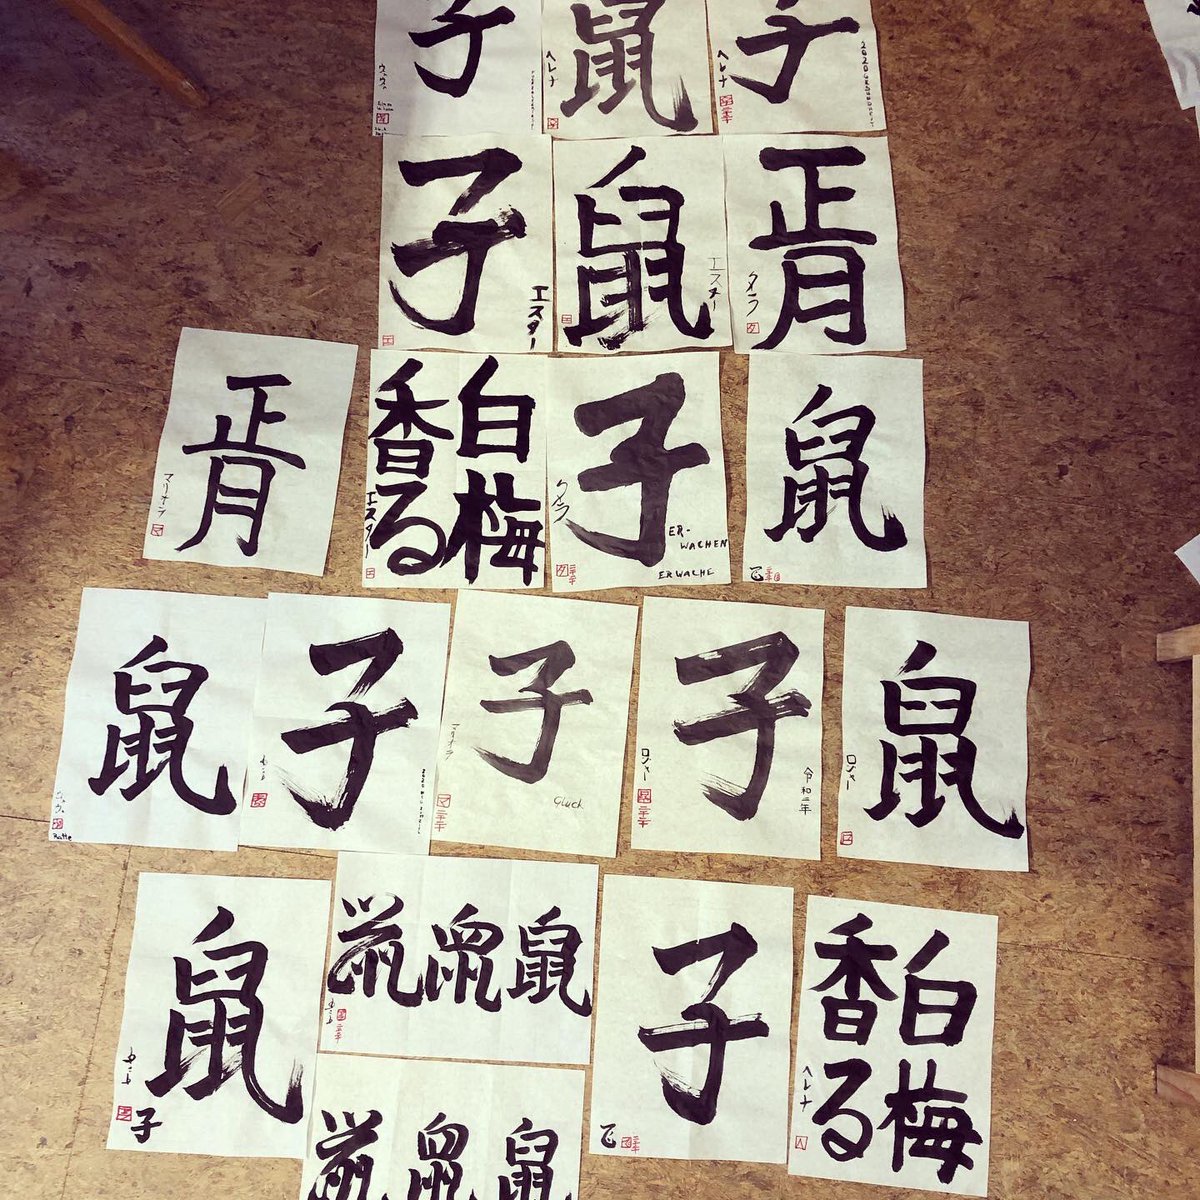 子
鼠
子
ヘレナ
ヘレナ
子
エスター
鼠
エスター
正月
正月
白梅
香る
エスター
子
ER-
WACHEN
ERWACHE
鼠
鼠
Ratte
子
子
Glück
子
ロジャー
令和二年
鼠
ロジャー
鼠
子
鼠鼠鼠
子
白梅
香る
ヘレナ
鼠鼠鼠